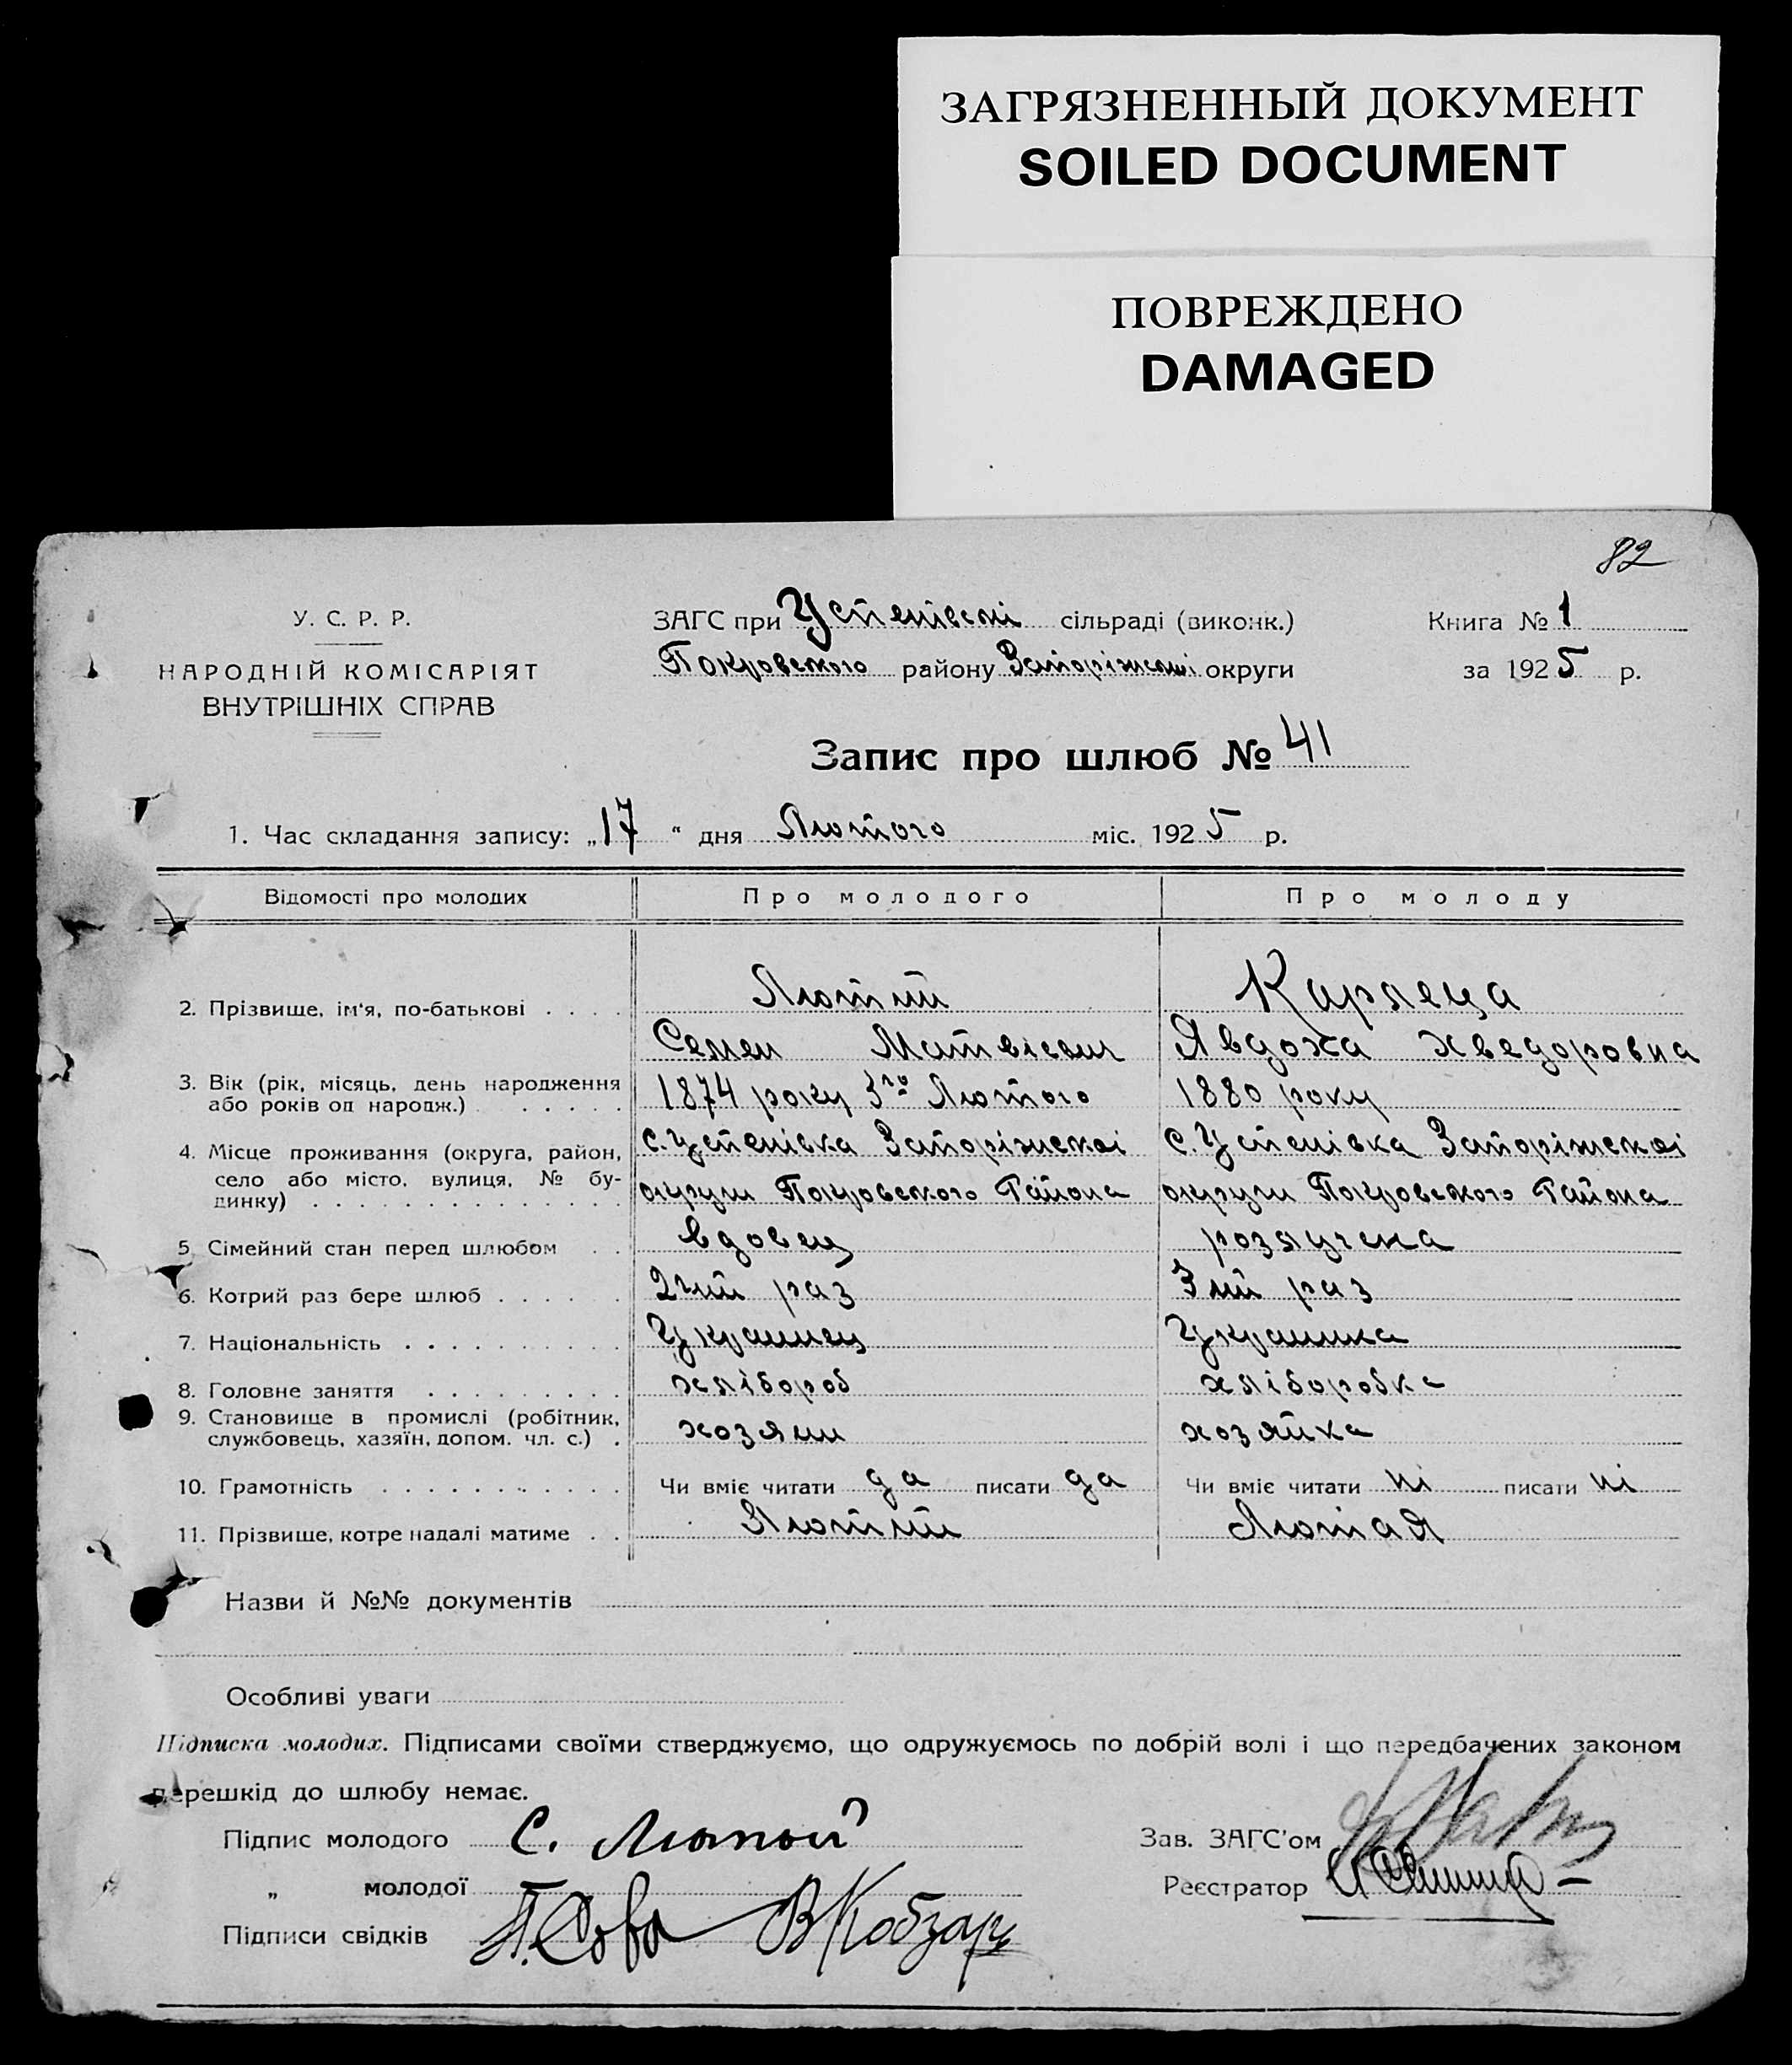 ЗАГРЯЗНЕННЫЙ ДОКУМЕНТ
SOILED DOCUMENT
ПОВРЕЖДЕНО
DAMAGED
82
У. С. Р. Р.
НАРОДНІЙ КОМІСАРІЯТ
ВНУТРІШНІХ СПРАВ
ЗАГС при Успенівскі сільраді (виконк.)
Покровского району Запоріжскоі округи
Книга № 1
за 1925 р.
Запис про шлюб № 41
1. Час складання запису: „17“ дня Лютого міс. 1925 р.
Відомості про молодих Про молодого Про молоду
2. Прізвище, ім'я, по-батькові . . . . Лютий Карлеца
Семен Матвієвич Явдоха Хведоровна
3. Вік (рік, місяць, день народження 1874 року 3го Лютого 1880 року
або років од народж.) . . . . . .
4. Місце проживання (округа, район, с. Успенівка Запоріжскоі с. Успенівка Запоріжскоі
село або місто, вулиця, № бу- округи Покровского Района округи Покровского Района
динку) . . . . . . . . . . . . . .
5. Сімейний стан перед шлюбом . . вдовец розлучена
6. Котрий раз бере шлюб . . . . . . 2гий раз 3ий раз
7. Національність . . . . . . . . . . Украинец Украинка
8. Головне заняття . . . . . . . . . хлібороб хліборобка
9. Становище в промислі (робітник, хозяин хозяйка
службовець, хазяїн, допом. чл. с.) .
10. Грамотність . . . . . . . . . . . Чи вміє читати да писати да Чи вміє читати ні писати ні
11. Прізвище, котре надалі матиме . . Лютий Лютая
Назви й №№ документів
Особливі уваги
Підписка молодих. Підписами своїми стверджуємо, що одружуємось по добрій волі і що передбачених законом
перешкід до шлюбу немає.
Підпис молодого С. Лютой Зав. ЗАГС'ом
„ молодої Реєстратор
Підписи свідків П. Сова В Кобзарь